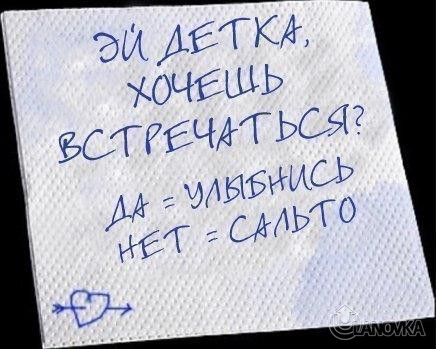 ЭЙ ДЕТКА,
ХОЧЕШЬ
ВСТРЕЧАТЬСЯ?
ДА = УЛЫБНИСЬ
НЕТ = САЛЬТО